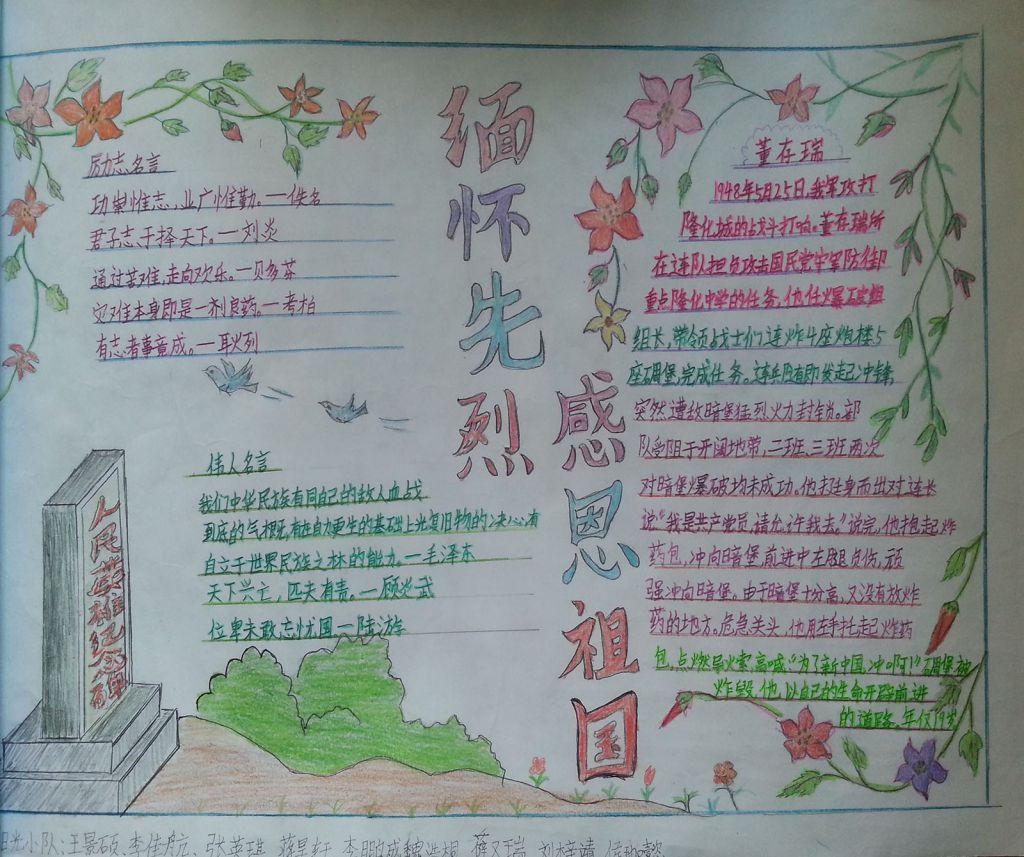 缅怀先烈
感恩祖国
励志名言
功崇惟志,业广惟勤。一佚名
君子志于择天下。一刘炎
通过苦难,走向欢乐。一贝多芬
灾难本身即是一剂良药。一考柏
有志者事竟成。一耿列
伟人名言
我们中华民族有同自己的敌人血战
到底的气概,有在自力更生的基础上光复旧物的决心,有
自立于世界民族之林的能力。一毛泽东
天下兴亡,匹夫有责。一顾炎武
位卑未敢忘忧国一陆游
人民英雄纪念碑
董存瑞
1948年5月25日,我军攻打
隆化城的战斗打响。董存瑞所
在连队担负攻击国民党守军防御
重点隆化中学的任务,他任爆破
组长,带领战士们连炸4座炮楼5
座碉堡,完成任务。连兵随即发起冲锋,
突然遭敌暗堡猛烈火力封锁。部
队受阻于开阔地带,二班、三班两次
对暗堡爆破均未成功。他挺身而出对连长
说“我是共产党员,请允许我去。”说完,他抱起炸
药包,冲向暗堡,前进中左腿负伤,顽
强冲向暗堡。由于暗堡十分高,又没有放炸
药的地方。危急关头,他用左手托起炸药
包,点燃导火索,高喊“为了新中国,冲啊!”碉堡被
炸毁,他以自己的生命开辟前进
的道路,年仅19岁
小队:王景硕、李佳航、张英琪